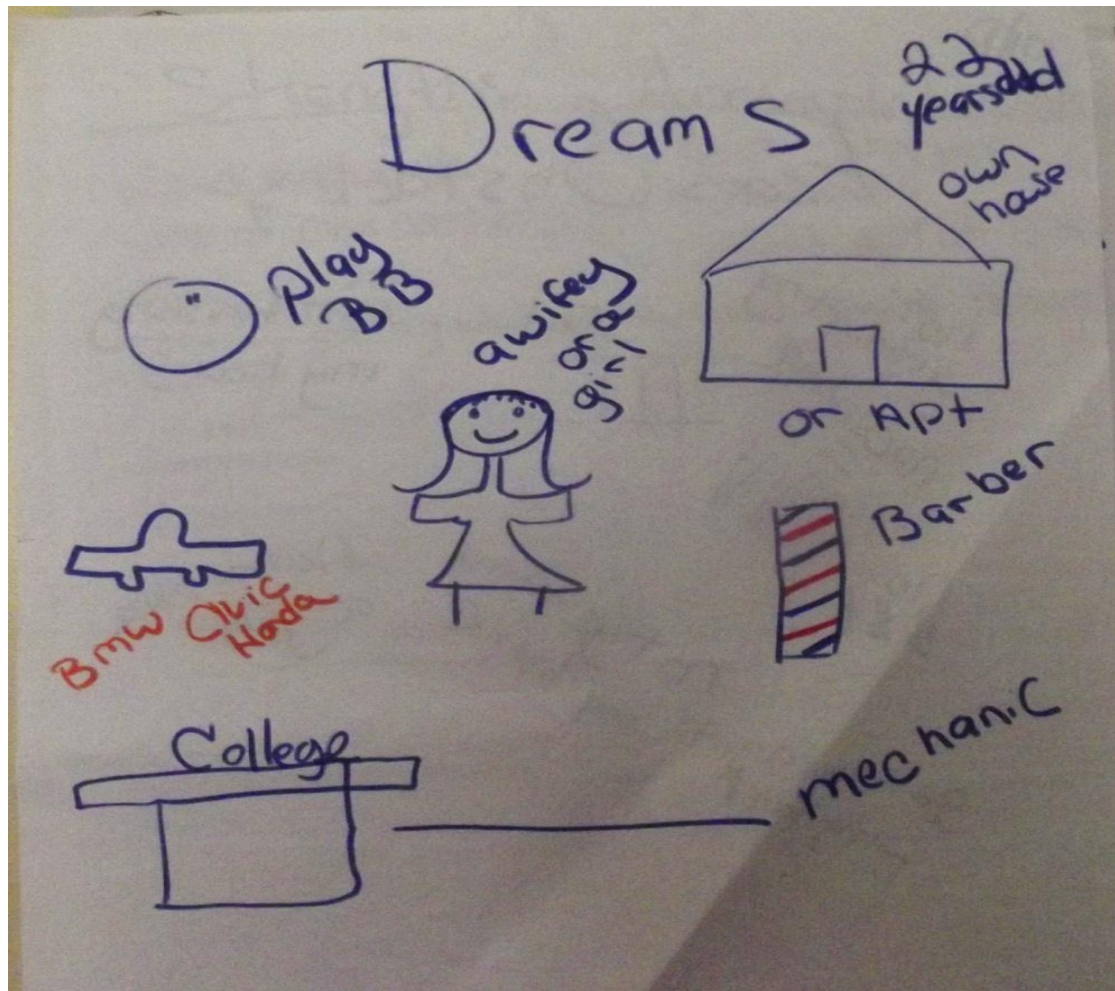 Dreams
22
years old
own
house
play
BB
a wifey
or a
girl
or Apt
Barber
BMW Civic
Honda
College
mechanic